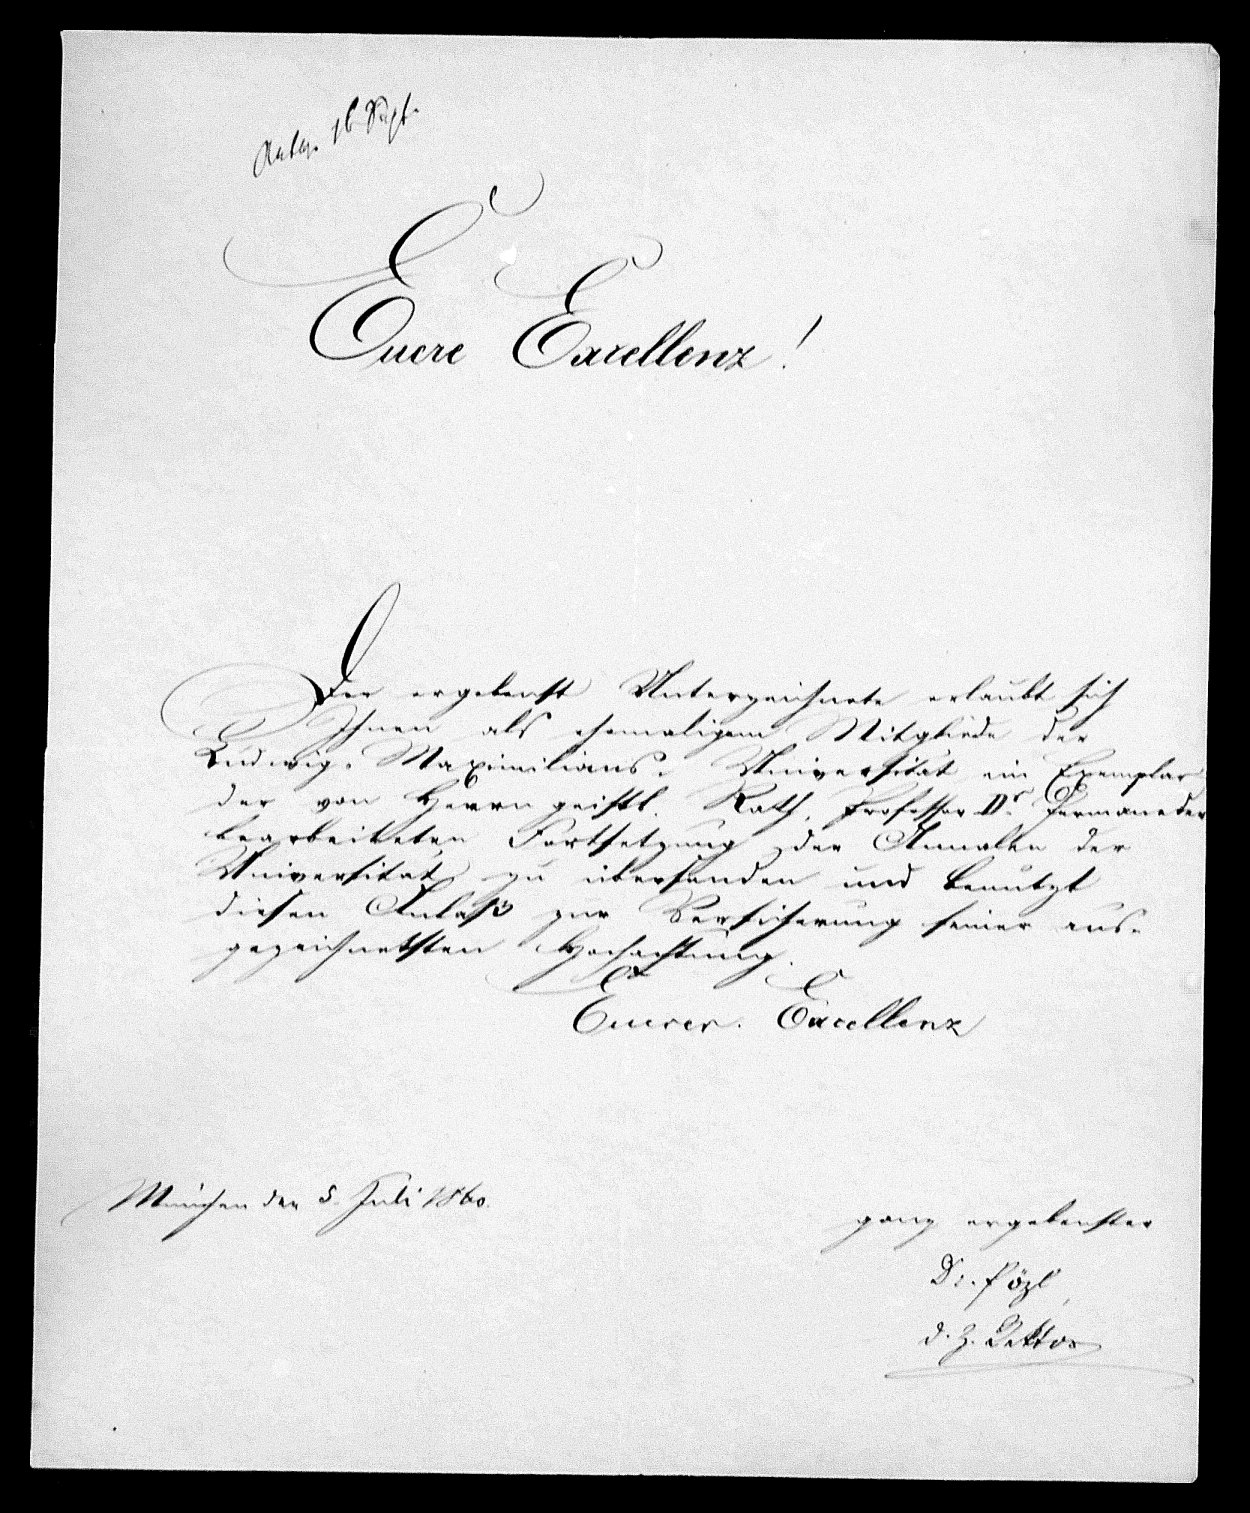 Antw. 16 Sept.
Euere Excellenz!
Der ergebenst Unterzeichnete erlaubt sich
Ihnen als ehemaligem Mitgliede der
Ludwig-Maximilians-Universität ein Exemplar
der von Herrn geistl. Rath, Professor Dr. Permaneder
bearbeiteten Fortsetzung der Annalen der
Universität zu übersenden und benützt
diesen Anlaß zur Versicherung seiner aus-
gezeichnetsten Hochachtung.
Euerer Excellenz
München den 5. Juli 1860.
ganz ergebenster
Dr. Pözl,
d. z. Rektor